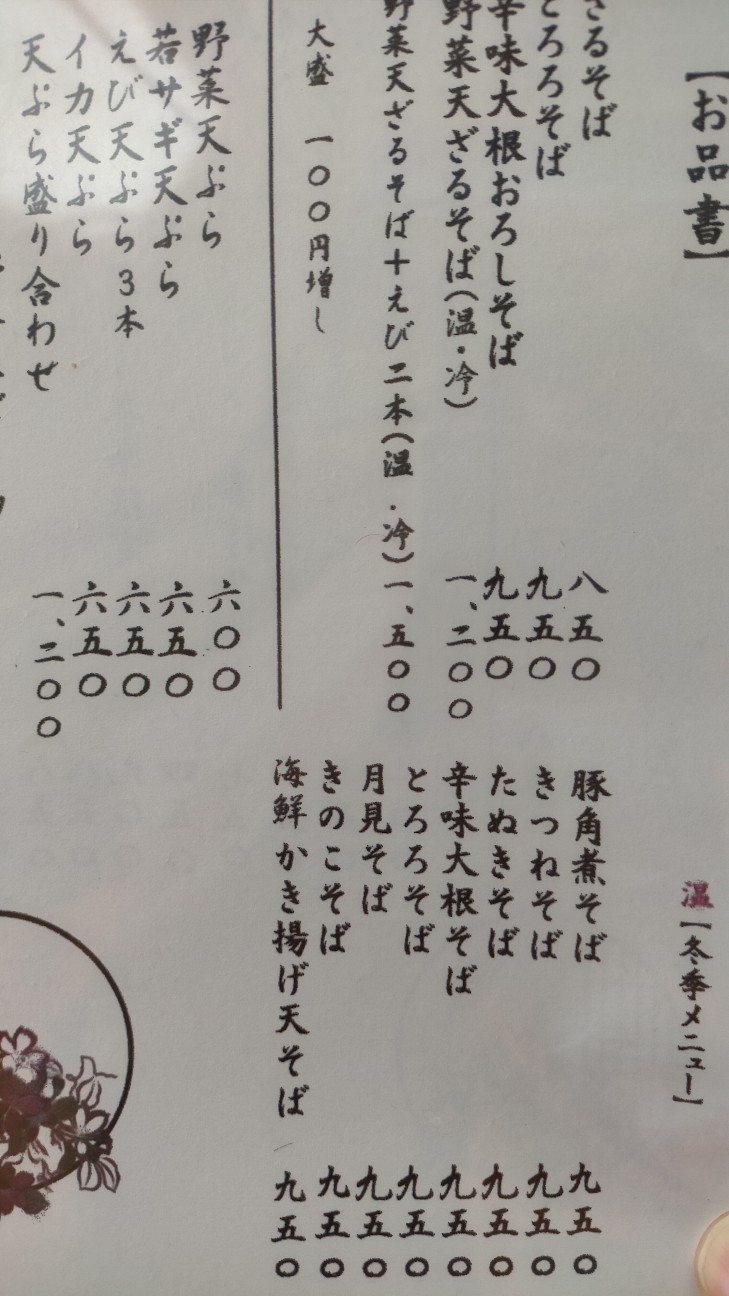 【お品書】
ざるそば 八五〇
とろろそば 九五〇
辛味大根おろしそば 九五〇
野菜天ざるそば(温・冷) 一、二〇〇
野菜天ざるそば＋えび二本(温・冷) 一、五〇〇
大盛 一〇〇円増し
野菜天ぷら 六〇〇
若サギ天ぷら 六五〇
えび天ぷら3本 六五〇
イカ天ぷら 六五〇
天ぷら盛り合わせ 一、二〇〇
温【冬季メニュー】
豚角煮そば 九五〇
きつねそば 九五〇
たぬきそば 九五〇
辛味大根そば 九五〇
とろろそば 九五〇
月見そば 九五〇
きのこそば 九五〇
海鮮かき揚げ天そば 九五〇